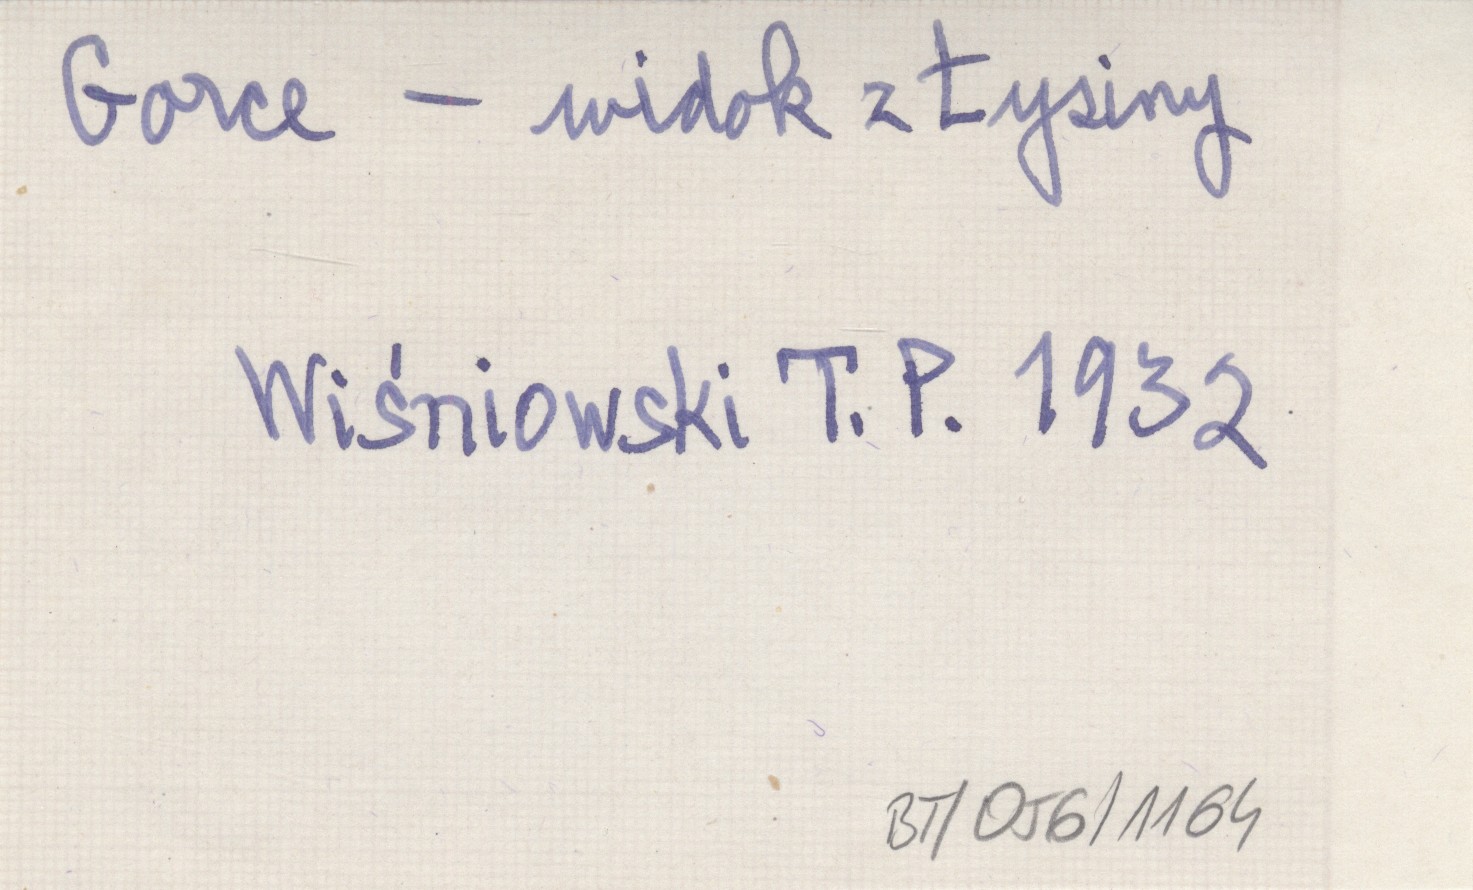 Gorce – widok z Łysiny
Wiśniowski T. P. 1932
BT/056/1164